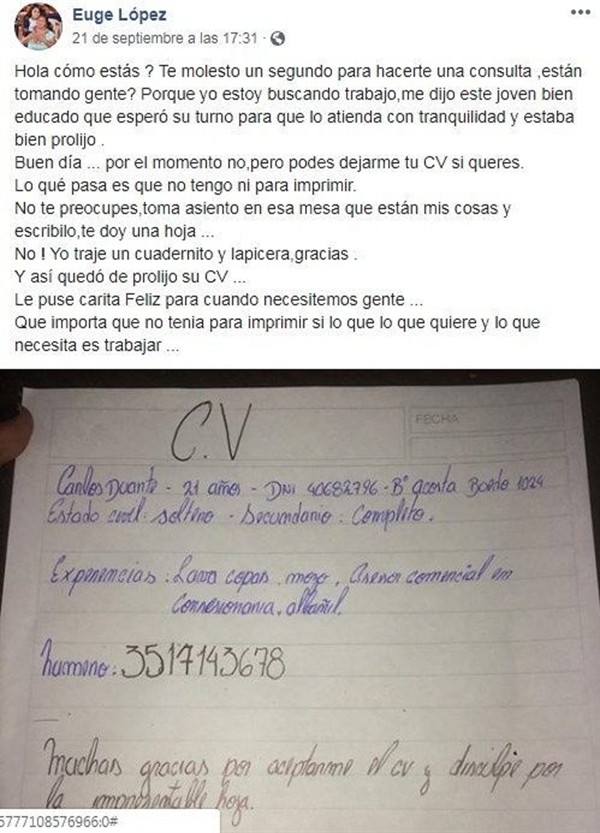 Euge López
21 de septiembre a las 17:31 ·
Hola cómo estás ? Te molesto un segundo para hacerte una consulta ,están
tomando gente? Porque yo estoy buscando trabajo,me dijo este joven bien
educado que esperó su turno para que lo atienda con tranquilidad y estaba
bien prolijo .
Buen día ... por el momento no,pero podes dejarme tu CV si queres.
Lo qué pasa es que no tengo ni para imprimir.
No te preocupes,toma asiento en esa mesa que están mis cosas y
escribilo,te doy una hoja ...
No ! Yo traje un cuadernito y lapicera,gracias .
Y así quedó de prolijo su CV ...
Le puse carita Feliz para cuando necesitemos gente ...
Que importa que no tenia para imprimir si lo que lo que quiere y lo que
necesita es trabajar ...
C.V
FECHA
Carlos Duarte - 21 años - DNI 40682796 - Bº acosta Boedo 1024
Estado civil: soltero - Secundario: Completo.
Experiencias: Lava copas, mozo, Asesor comercial en
Consesionaria, albañil.
humero: 3517143678
Muchas gracias por aceptarme el cv y disculpe por
la impresentable hoja.
5777108576966:0#